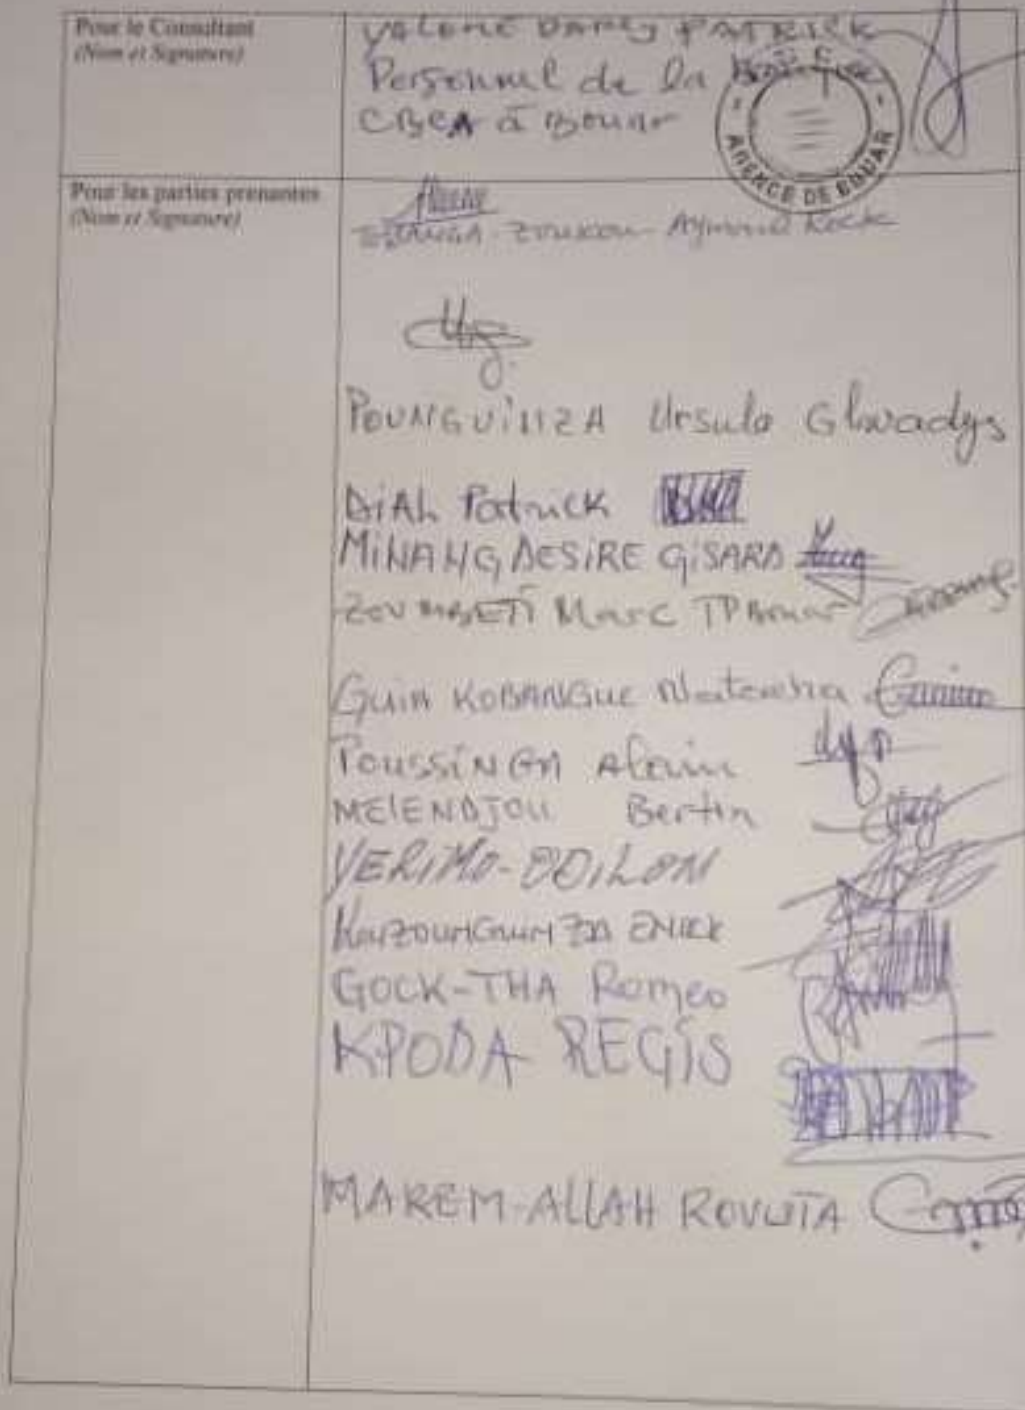 Pour le Consultant
(Nom et Signature)
YALONE DANLY PATRICK
Personnel de la
CBCA à Bouar
AGENCE DE BOUAR
Pour les parties prenantes
(Nom et Signature)
ZOUKOU Aymard Rock
POUNGUINZA Ursula Glwadys
DiAh Patrick
MINANG DESIRE GISARD
ZOUMBETI Marc TP Bouar
Guin KOBANGUE Natacha
POUSSINGA Alain
MELENDJOU Bertin
YERIMO-ODILON
ENICK
GOCK-THA Romeo
KPODA REGIS
MAREM-ALLAH ROVUTA